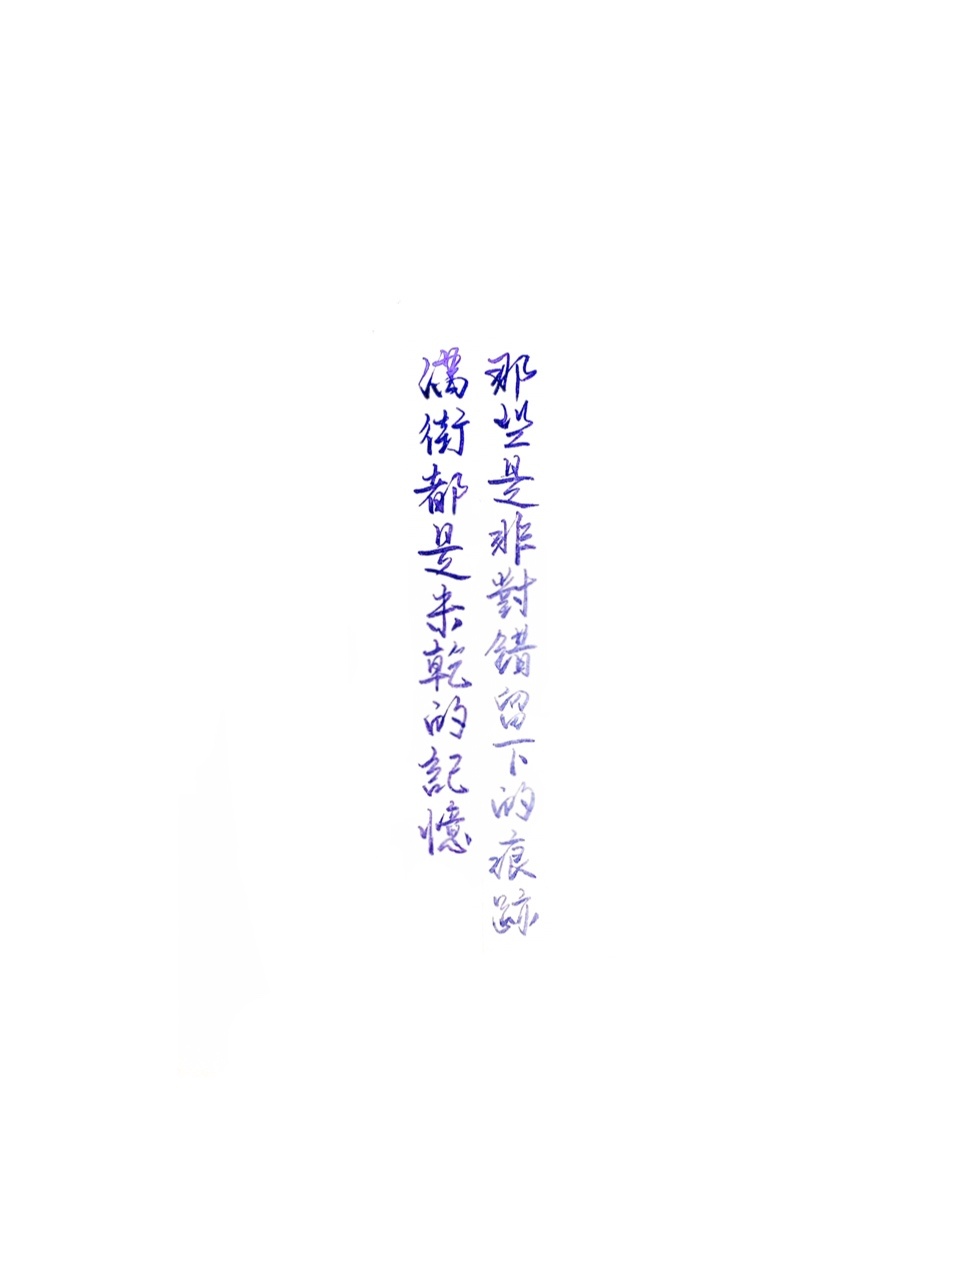 那些是非對錯留下的痕跡
滿街都是未乾的記憶